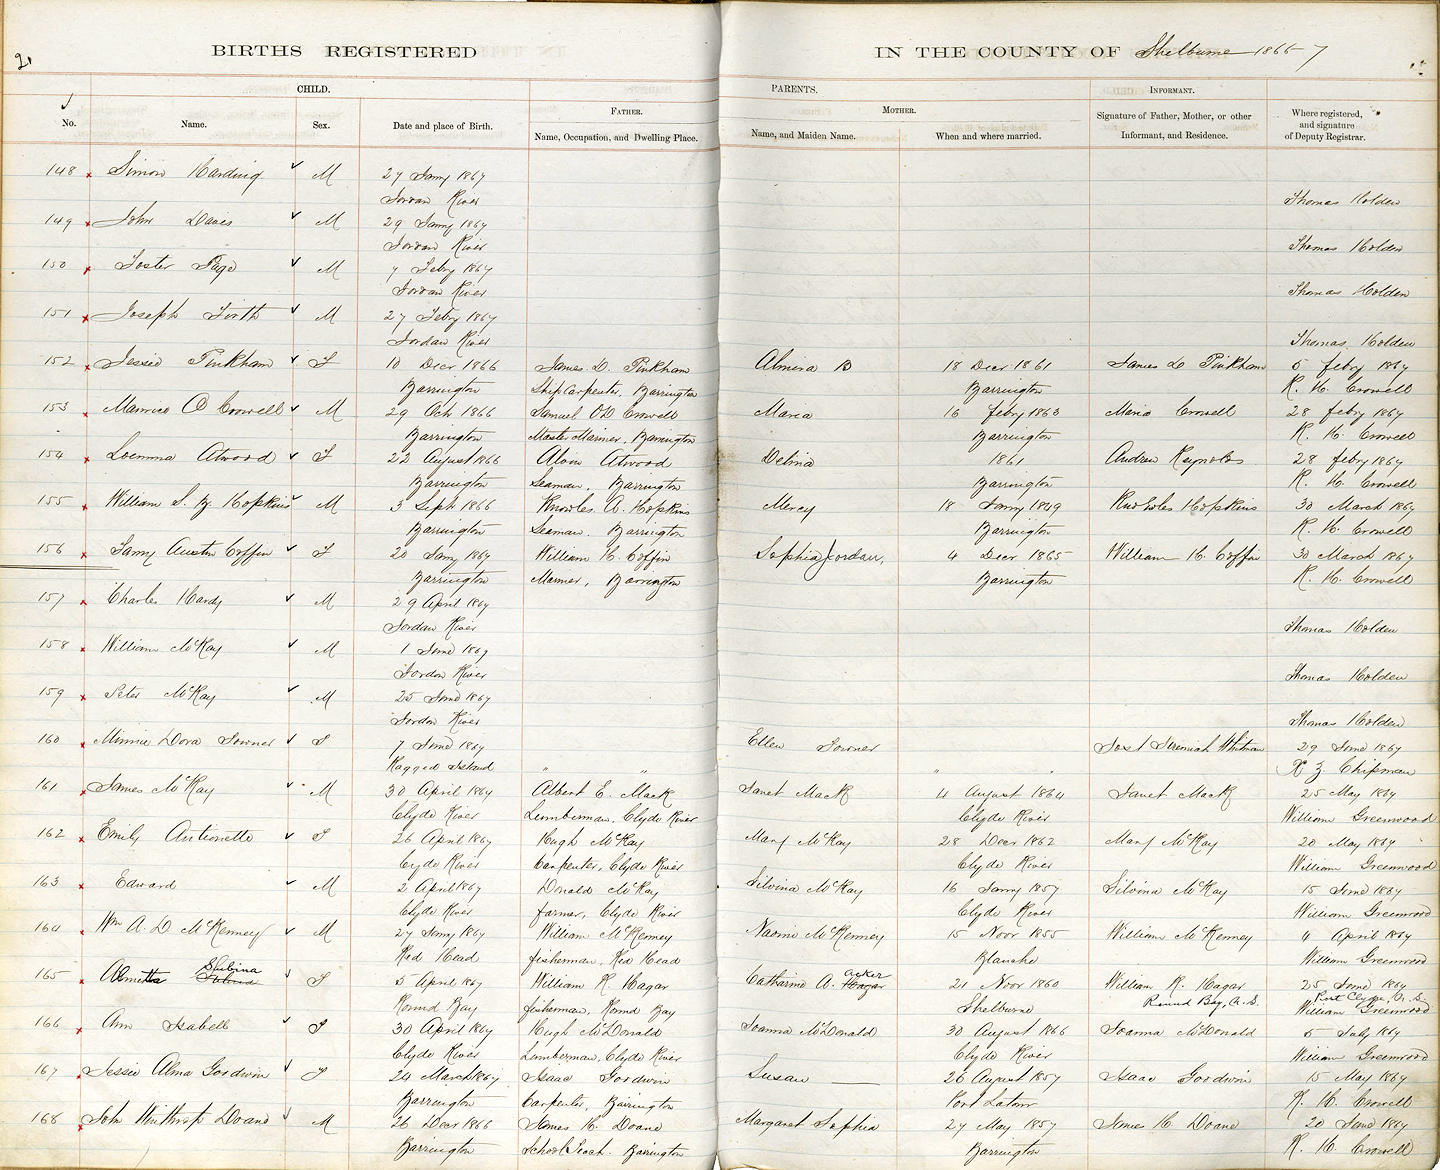 2.
BIRTHS REGISTERED IN THE COUNTY OF Shelburne 1866-7
CHILD. PARENTS. INFORMANT.
FATHER. MOTHER.
No. Name. Sex. Date and place of Birth. Name, Occupation, and Dwelling Place. Name, and Maiden Name. When and where married. Signature of Father, Mother, or other Informant, and Residence. Where registered, and signature of Deputy Registrar.
148 Simon Harding M 27 Jany 1867
Jordan River Thomas Holden
149 John Davis M 29 Jany 1867
Jordan River Thomas Holden
150 Foster Page M 7 Febry 1867
Jordan River Thomas Holden
151 Joseph Firth M 27 Febry 1867
Jordan River Thomas Holden
152 Jessie Pinkham F 10 Decr 1866 James L. Pinkham Almira B 18 Decr 1861 James L Pinkham 5 febry 1867
Barrington Ship Carpenter, Barrington Barrington R. H. Crowell
153 Maurice O Crowell M 29 Oct 1866 Samuel OD Crowell Maria 16 febry 1863 Maria Crowell 28 febry 1867
Barrington Master Mariner, Barrington Barrington R. H. Crowell
154 Loemma Atwood F 22 August 1866 Alvin Atwood Delina 1861 Andrew Reynolds 28 febry 1867
Barrington Seaman, Barrington Barrington R. H. Crowell
155 William S. Z. Hopkins M 3 Sept 1866 Knowles A. Hopkins Mercy 18 Jany 1849 Knowles Hopkins 30 March 1867
Barrington Seaman, Barrington Barrington R. H. Crowell
156 Fanny Austin Coffin F 20 Jany 1867 William H. Coffin Sophia Jordan, 4 Decr 1865 William H. Coffin 30 March 1867
Barrington Mariner, Barrington Barrington R. H. Crowell
157 Charles Hardy M 29 April 1867
Jordan River Thomas Holden
158 William McKay M 1 June 1867
Jordan River Thomas Holden
159 Peter McKay M 25 June 1867
Jordan River Thomas Holden
160 Minnie Dora Towner F 7 June 1867 Ellen Towner Jeremiah Whitman 29 June 1867
Ragged Island " " " " Chipman
161 James McKay M 30 April 1867 Albert E. Mack Janet Mack 4 August 1864 Janet Mack 25 May 1867
Clyde River Lumberman, Clyde River Clyde River William Greenwood
162 Emily Antionette F 26 April 1867 Hugh McKay Mary McKay 28 Decr 1862 Mary McKay 20 May 1867
Cyde River Carpenter, Clyde River Clyde River William Greenwood
163 Edward M 2 April 1867 Donald McKay Silvina McKay 16 Jany 1857 Silvina McKay 15 June 1867
Clyde River farmer, Clyde River Clyde River William Greenwood
164 Wm A. D. McKenney M 27 Jany 1867 William McKenney Naomi McKenney 15 Novr 1855 William McKenney 4 April 1867
Red Head fisherman, Red Head Blanche William Greenwood
Shibina acker
165 Almetta F 5 April 1867 William R. Hagar Catharine A. Hagar 21 Novr 1860 William R. Hagar 25 June 1867
Round Bay, N.S. Port Clyde, N.S.
Round Bay fisherman, Round Bay Shelburne William Greenwood
166 Ann Isabell F 30 April 1867 Hugh McDonald Joanna McDonald 30 August 1866 Joanna McDonald 5 July 1867
Clyde River Lumberman, Clyde River Clyde River William Greenwood
167 Jessie Alma Goodwin F 24 March 1867 Isaac Goodwin Susan 26 August 1857 Isaac Goodwin 15 May 1867
Barrington Carpenter, Barrington Port Latour R. H. Crowell
168 John Winthrop Doane M 26 Decr 1866 James H. Doane Margaret Sophia 27 May 1857 James H Doane 20 June 1867
Barrington School Teach. Barrington Barrington R. H. Crowell